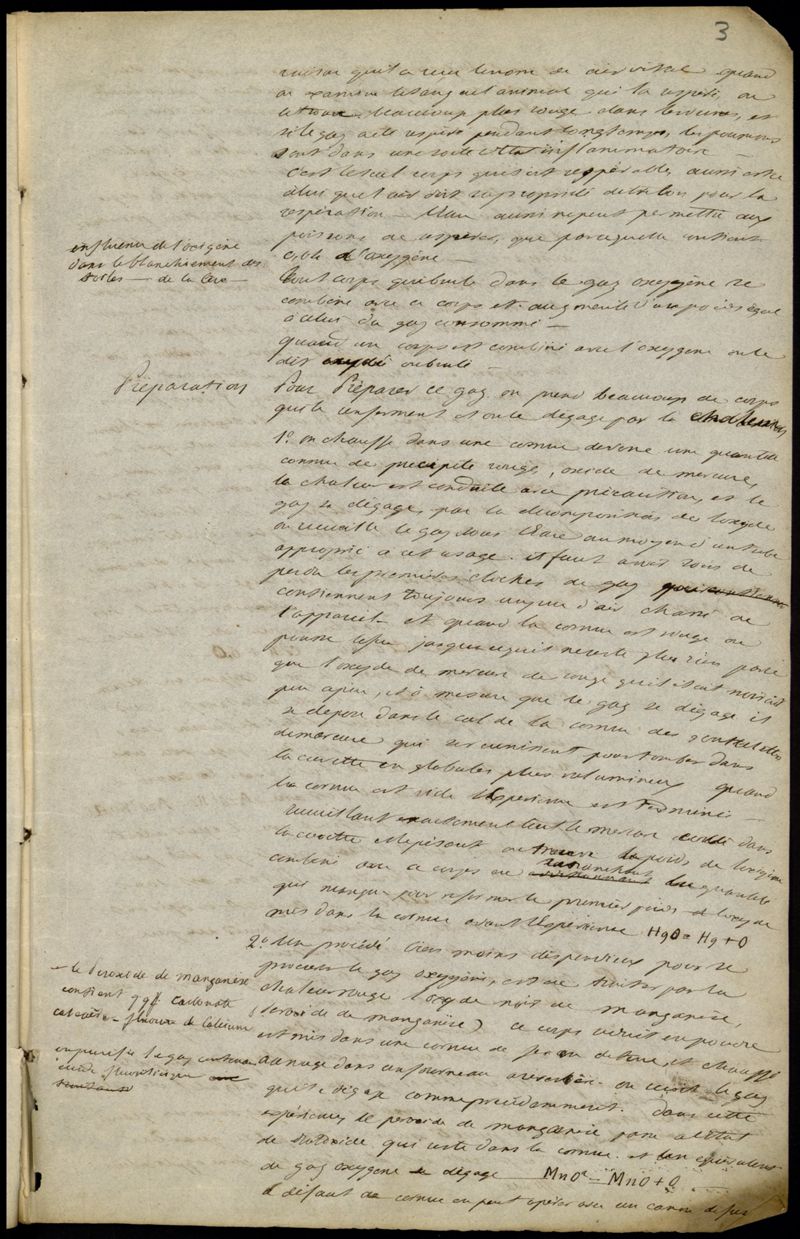 3
raison qu'il a reçu le nom de air vital quand
on examine le sang un animal qui l'a respiré, on
le trouve beaucoup plus rouge dans les veines, et
si le gaz a été respiré pendant longtemps, les poumons
sont dans une inflammatoire —
C'est le seul corps qui soit respirable, aussi est ce
à lui que l'air doit sa propriété pour la
respiration — l'eau aussi ne peut permettre aux
poissons de respirer, que parce qu'elle contient
de l'oxygène —
influence de l'oxigène
dans le blanchiement des
toiles — de la Cire —
Tout corps qui brule dans le gaz oxygène se
combine avec ce corps et augmente d'un poids égal
à celui du gaz consommé —
quand un corps est combiné avec l'oxygène on le
dit oxydé ou brulé —
Préparation
Pour Préparer ce gaz on prend beaucoup de corps
qui le renferment et on le dégage par la chaleur
1º on chauffe dans une cornue de verre une quantité
connue de précipité rouge, oxide de mercure,
la chaleur est conduite avec précaution, et le
gaz se dégage, par la décomposition de l'oxyde
on recueille le gaz sous l'eau au moyen d'un tube
approprié à cet usage. il faut avoir soin de
perdre les premières cloches de gaz qui contiennent
contiennent toujours un peu d'air chassé de
l'appareil — et quand la cornue est rouge on
pousse le feu jusqu'à ce qu'il ne reste plus rien
que l'oxyde de mercure de rouge qu'il était noircit
peu à peu, et à mesure que le gaz se dégage il
se dépose dans le col de la cornue des goutelettes
de mercure qui se réunissent pour tomber dans
la cuvette en globules plus volumineux quand
la cornue est vide l'expérience est terminée —
recueillant exactement tout le mercure dans
la cuvette et le pesant on trouve le poids de l'oxigène
combiné avec ce corps en retranchant la quantité
qui manque pour reformer le premier poids d'oxyde
mis dans la cornue avant l'expérience HgO = Hg + O
2º Un procédé bien moins dispendieux pour se
procurer le gaz oxygène, est de traiter par la
chaleur rouge l'oxyde noir de manganèse,
(peroxide de manganèse) ce corps réduit en poudre
est mis dans une cornue de fer ou de terre, et chauffé
au rouge dans un fourneau à réverbère. on recueille le gaz
qui se dégage comme précédemment. Dans cette
expérience, le peroxide de manganèse passe à l'état
de protoxide qui reste dans la cornue. et un équivalent
de gaz oxygène se dégage MnO² = MnO + O
à défaut de cornue on peut opérer avec un canon de fusil
— le Peroxide de manganèse
contient qqf carbonate
calcaire — fluorure de Calcium
on purifie le gaz contenant
acide fluorhydrique avec